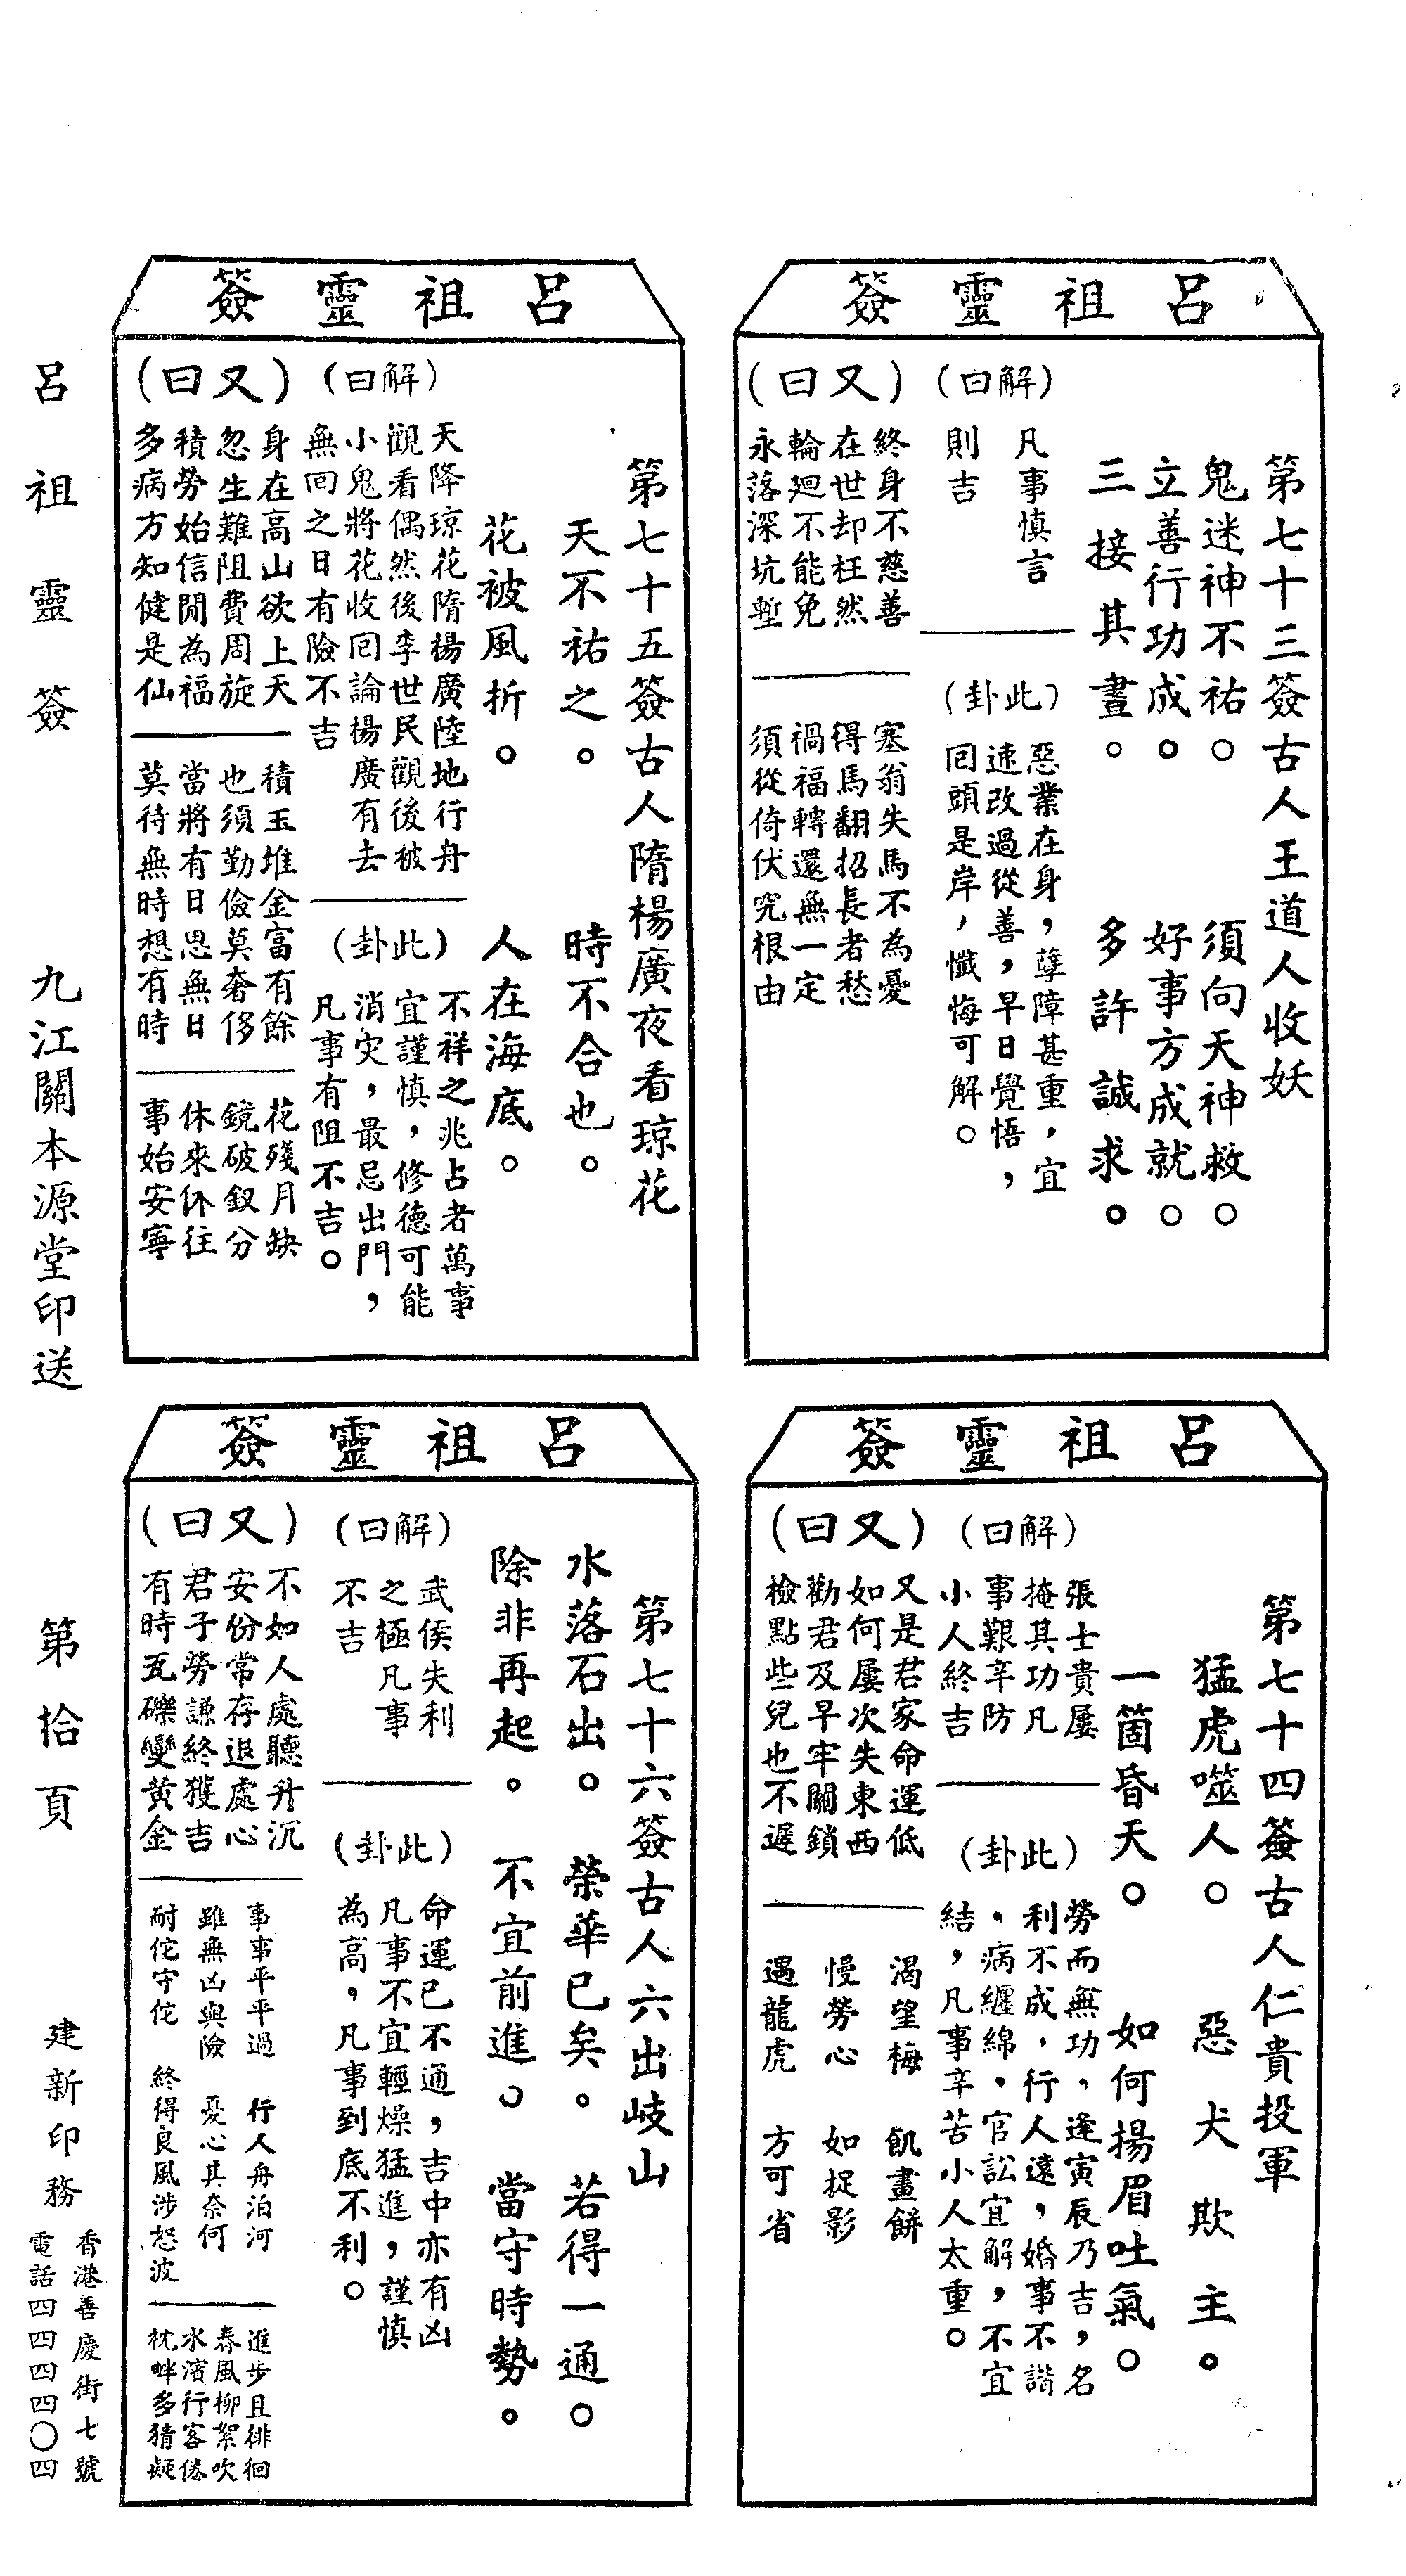 呂祖靈簽
第七十三簽古人王道人收妖
鬼迷神不祐。須向天神救。
立善行功成。好事方成就。
三接其晝。多許誠求。
(解曰)
凡事慎言
則吉
(此卦)
惡業在身，孽障甚重，宜
速改過從善，早日覺悟，
回頭是岸，懺悔可解。
(又曰)
終身不慈善
在世却枉然
輪廻不能免
永落深坑塹
塞翁失馬不為憂
得馬翻招長者愁
禍福轉還無一定
須從倚伏究根由
呂祖靈簽
第七十四簽古人仁貴投軍
猛虎噬人。惡犬欺主。
一箇昏天。如何揚眉吐氣。
(解曰)
張士貴屢
掩其功凡
事艱辛防
小人終吉
(此卦)
勞而無功，逢寅辰乃吉，名
利不成，行人遠，婚事不諧
，病纏綿，官訟宜解，不宜
結，凡事辛苦小人太重。
(又曰)
又是君家命運低
如何屢次失東西
勸君及早牢關鎖
檢點些兒也不遲
渴望梅 飢畫餅
慢勞心 如捉影
遇龍虎 方可省
呂祖靈簽
第七十五簽古人隋楊廣夜看琼花
天不祐之。時不合也。
花被風折。人在海底。
(解曰)
天降琼花隋楊廣陸地行舟
觀看偶然後李世民觀後被
小鬼將花收回論楊廣有去
無回之日有險不吉
(此卦)
不祥之兆占者萬事
宜謹慎，修德可能
消灾，最忌出門，
凡事有阻不吉。
(又曰)
身在高山欲上天
忽生難阻費周旋
積勞始信閒為福
多病方知健是仙
積玉堆金富有餘
也須勤儉莫奢侈
當將有日思無日
莫待無時想有時
花殘月缺
鏡破釵分
休來休往
事始安寧
呂祖靈簽
第七十六簽古人六出岐山
水落石出。榮華已矣。若得一通。
除非再起。不宜前進。當守時勢。
(解曰)
武侯失利
之極凡事
不吉
(此卦)
命運已不通，吉中亦有凶
凡事不宜輕燥猛進，謹慎
為高，凡事到底不利。
(又曰)
不如人處聽升沉
安份常存退處心
君子勞謙終獲吉
有時瓦礫變黃金
事事平平過 行人舟泊河
雖無凶與險 憂心其奈何
耐佗守佗 終得良風涉怒波
進步且徘徊
春風柳絮吹
水濱行客倦
枕畔多猜疑
呂祖靈簽 九江關本源堂印送 第拾頁 建新印務
香港善慶街七號
電話四四四四〇四